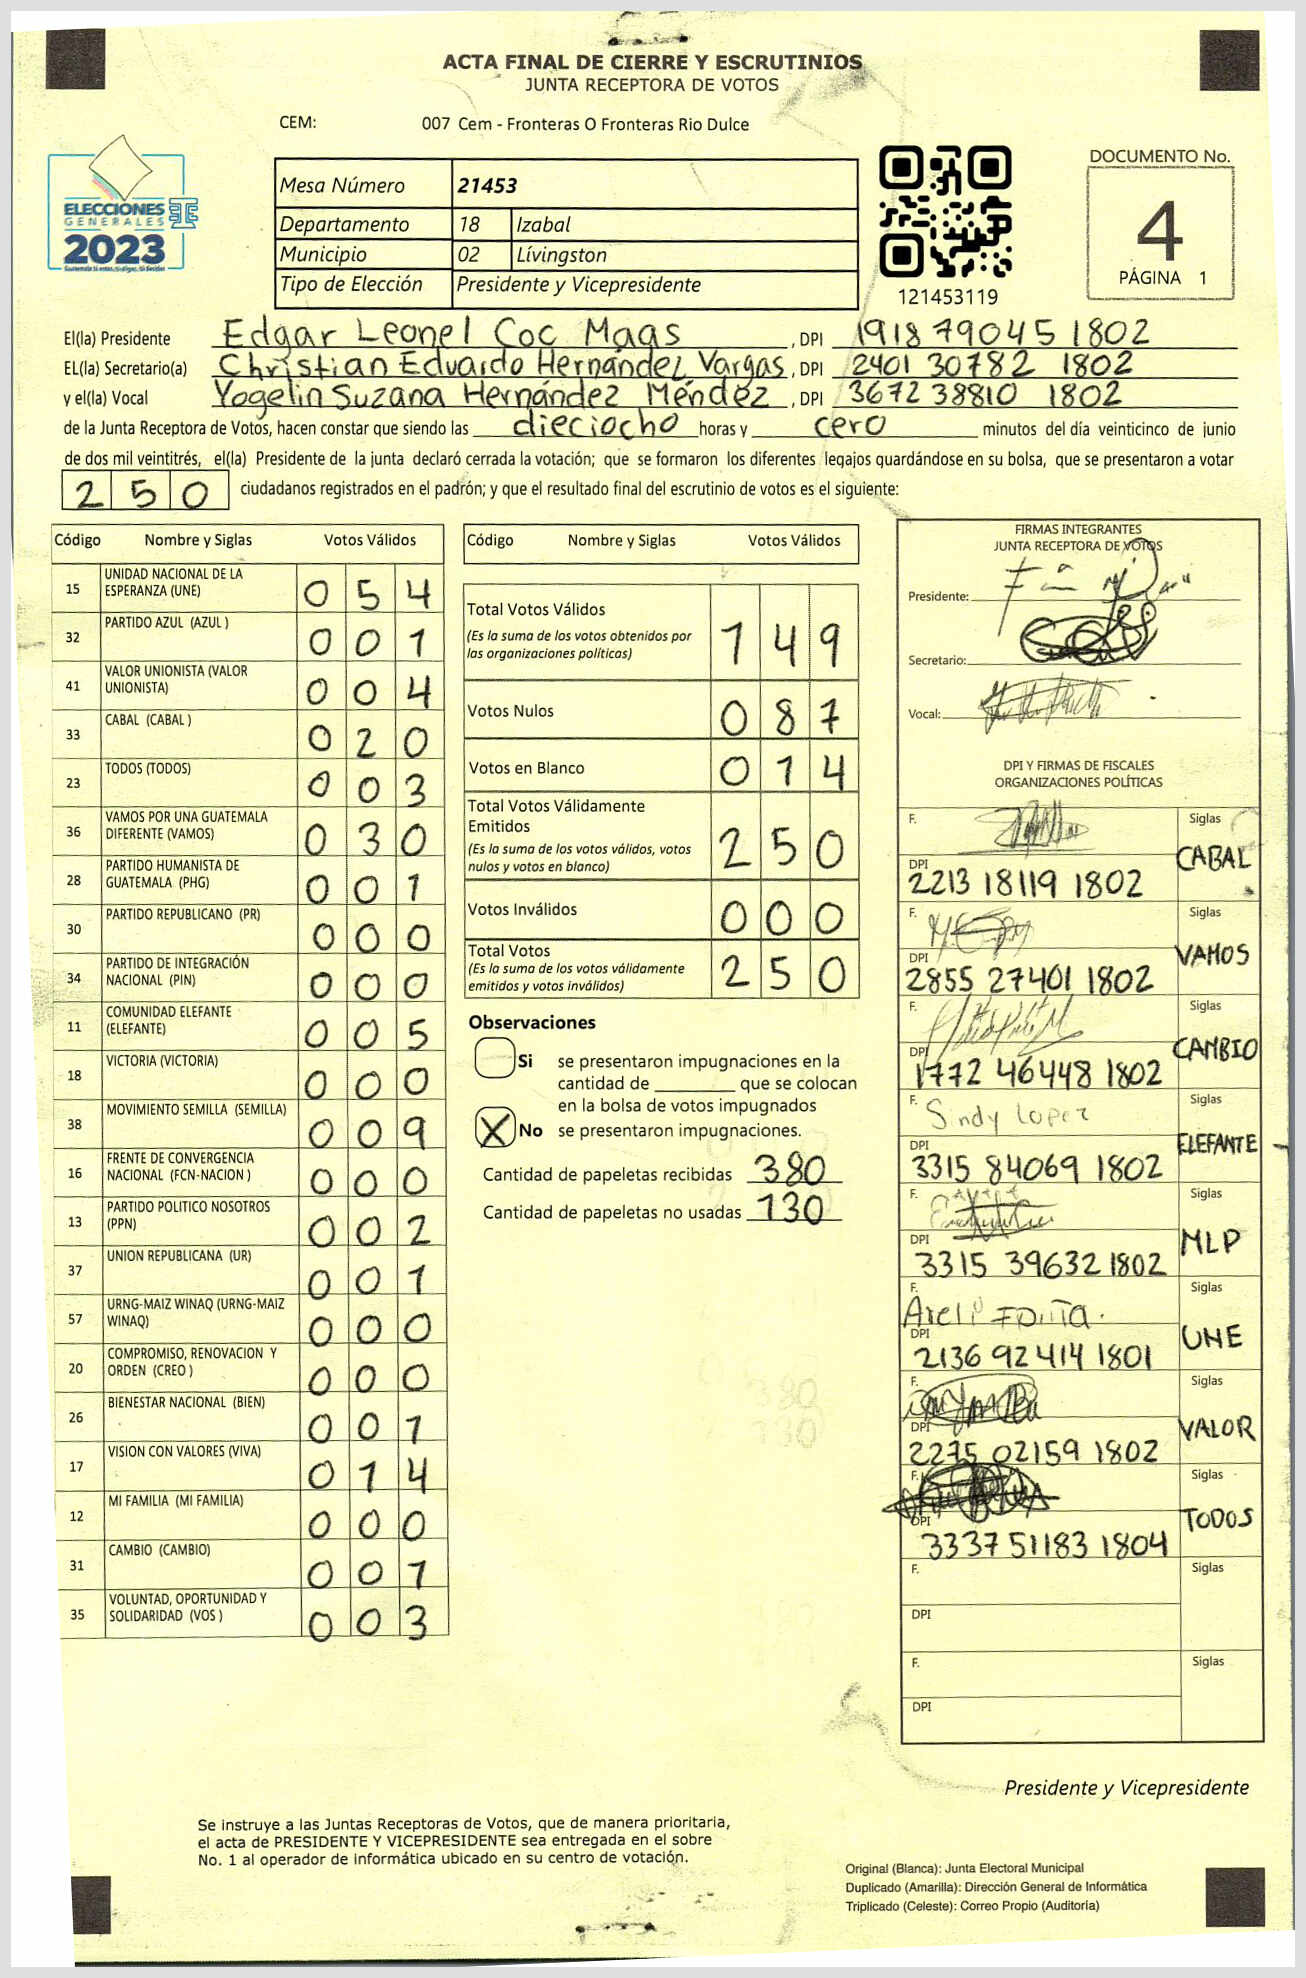 ACTA FINAL DE CIERRE Y ESCRUTINIOS
JUNTA RECEPTORA DE VOTOS
CEM: 007 Cem - Fronteras O Fronteras Rio Dulce
ELECCIONES
GENERALES
2023
Mesa Número 21453
Departamento 18 Izabal
Municipio 02 Lívingston
Tipo de Elección Presidente y Vicepresidente
121453119
DOCUMENTO No.
4
PÁGINA 1
El(la) Presidente Edgar Leonel Coc Maas , DPI 1918 79045 1802
EL(la) Secretario(a) Christian Eduardo Hernández Vargas , DPI 2401 30782 1802
y el(la) Vocal Yogelin Suzana Hernández Méndez , DPI 3672 38810 1802
de la Junta Receptora de Votos, hacen constar que siendo las dieciocho horas y cero minutos del día veinticinco de junio
de dos mil veintitrés, el(la) Presidente de la junta declaró cerrada la votación; que se formaron los diferentes legajos guardándose en su bolsa, que se presentaron a votar
250 ciudadanos registrados en el padrón; y que el resultado final del escrutinio de votos es el siguiente:
Código Nombre y Siglas Votos Válidos
15 UNIDAD NACIONAL DE LA ESPERANZA (UNE) 054
32 PARTIDO AZUL (AZUL ) 001
41 VALOR UNIONISTA (VALOR UNIONISTA) 004
33 CABAL (CABAL ) 020
23 TODOS (TODOS) 003
36 VAMOS POR UNA GUATEMALA DIFERENTE (VAMOS) 030
28 PARTIDO HUMANISTA DE GUATEMALA (PHG) 001
30 PARTIDO REPUBLICANO (PR) 000
34 PARTIDO DE INTEGRACIÓN NACIONAL (PIN) 000
11 COMUNIDAD ELEFANTE (ELEFANTE) 005
18 VICTORIA (VICTORIA) 000
38 MOVIMIENTO SEMILLA (SEMILLA) 009
16 FRENTE DE CONVERGENCIA NACIONAL (FCN-NACION ) 000
13 PARTIDO POLITICO NOSOTROS (PPN) 002
37 UNION REPUBLICANA (UR) 001
57 URNG-MAIZ WINAQ (URNG-MAIZ WINAQ) 000
20 COMPROMISO, RENOVACION Y ORDEN (CREO ) 000
26 BIENESTAR NACIONAL (BIEN) 001
17 VISION CON VALORES (VIVA) 014
12 MI FAMILIA (MI FAMILIA) 000
31 CAMBIO (CAMBIO) 001
35 VOLUNTAD, OPORTUNIDAD Y SOLIDARIDAD (VOS ) 003
Código Nombre y Siglas Votos Válidos
Total Votos Válidos 149
(Es la suma de los votos obtenidos por
las organizaciones políticas)
Votos Nulos 087
Votos en Blanco 014
Total Votos Válidamente
Emitidos 250
(Es la suma de los votos válidos, votos
nulos y votos en blanco)
Votos Inválidos 000
Total Votos 250
(Es la suma de los votos válidamente
emitidos y votos inválidos)
Observaciones
Si se presentaron impugnaciones en la
cantidad de ________ que se colocan
en la bolsa de votos impugnados
X No se presentaron impugnaciones.
Cantidad de papeletas recibidas 380
Cantidad de papeletas no usadas 130
FIRMAS INTEGRANTES
JUNTA RECEPTORA DE VOTOS
Presidente:
Secretario:
Vocal:
DPI Y FIRMAS DE FISCALES
ORGANIZACIONES POLÍTICAS
F. Siglas CABAL
DPI 2213 18119 1802
F. Siglas VAMOS
DPI 2855 27401 1802
F. Siglas CAMBIO
DPI 1772 46448 1802
F. Sindy Lopez Siglas ELEFANTE
DPI 3315 84069 1802
F. Siglas MLP
DPI 3315 39632 1802
F. Siglas UNE
DPI 2136 92414 1801
F. Siglas VALOR
DPI 2275 02159 1802
F. Siglas TODOS
DPI 3337 51183 1804
F. Siglas
DPI
F. Siglas
DPI
Presidente y Vicepresidente
Se instruye a las Juntas Receptoras de Votos, que de manera prioritaria,
el acta de PRESIDENTE Y VICEPRESIDENTE sea entregada en el sobre
No. 1 al operador de informática ubicado en su centro de votación.
Original (Blanca): Junta Electoral Municipal
Duplicado (Amarilla): Dirección General de Informática
Triplicado (Celeste): Correo Propio (Auditoria)